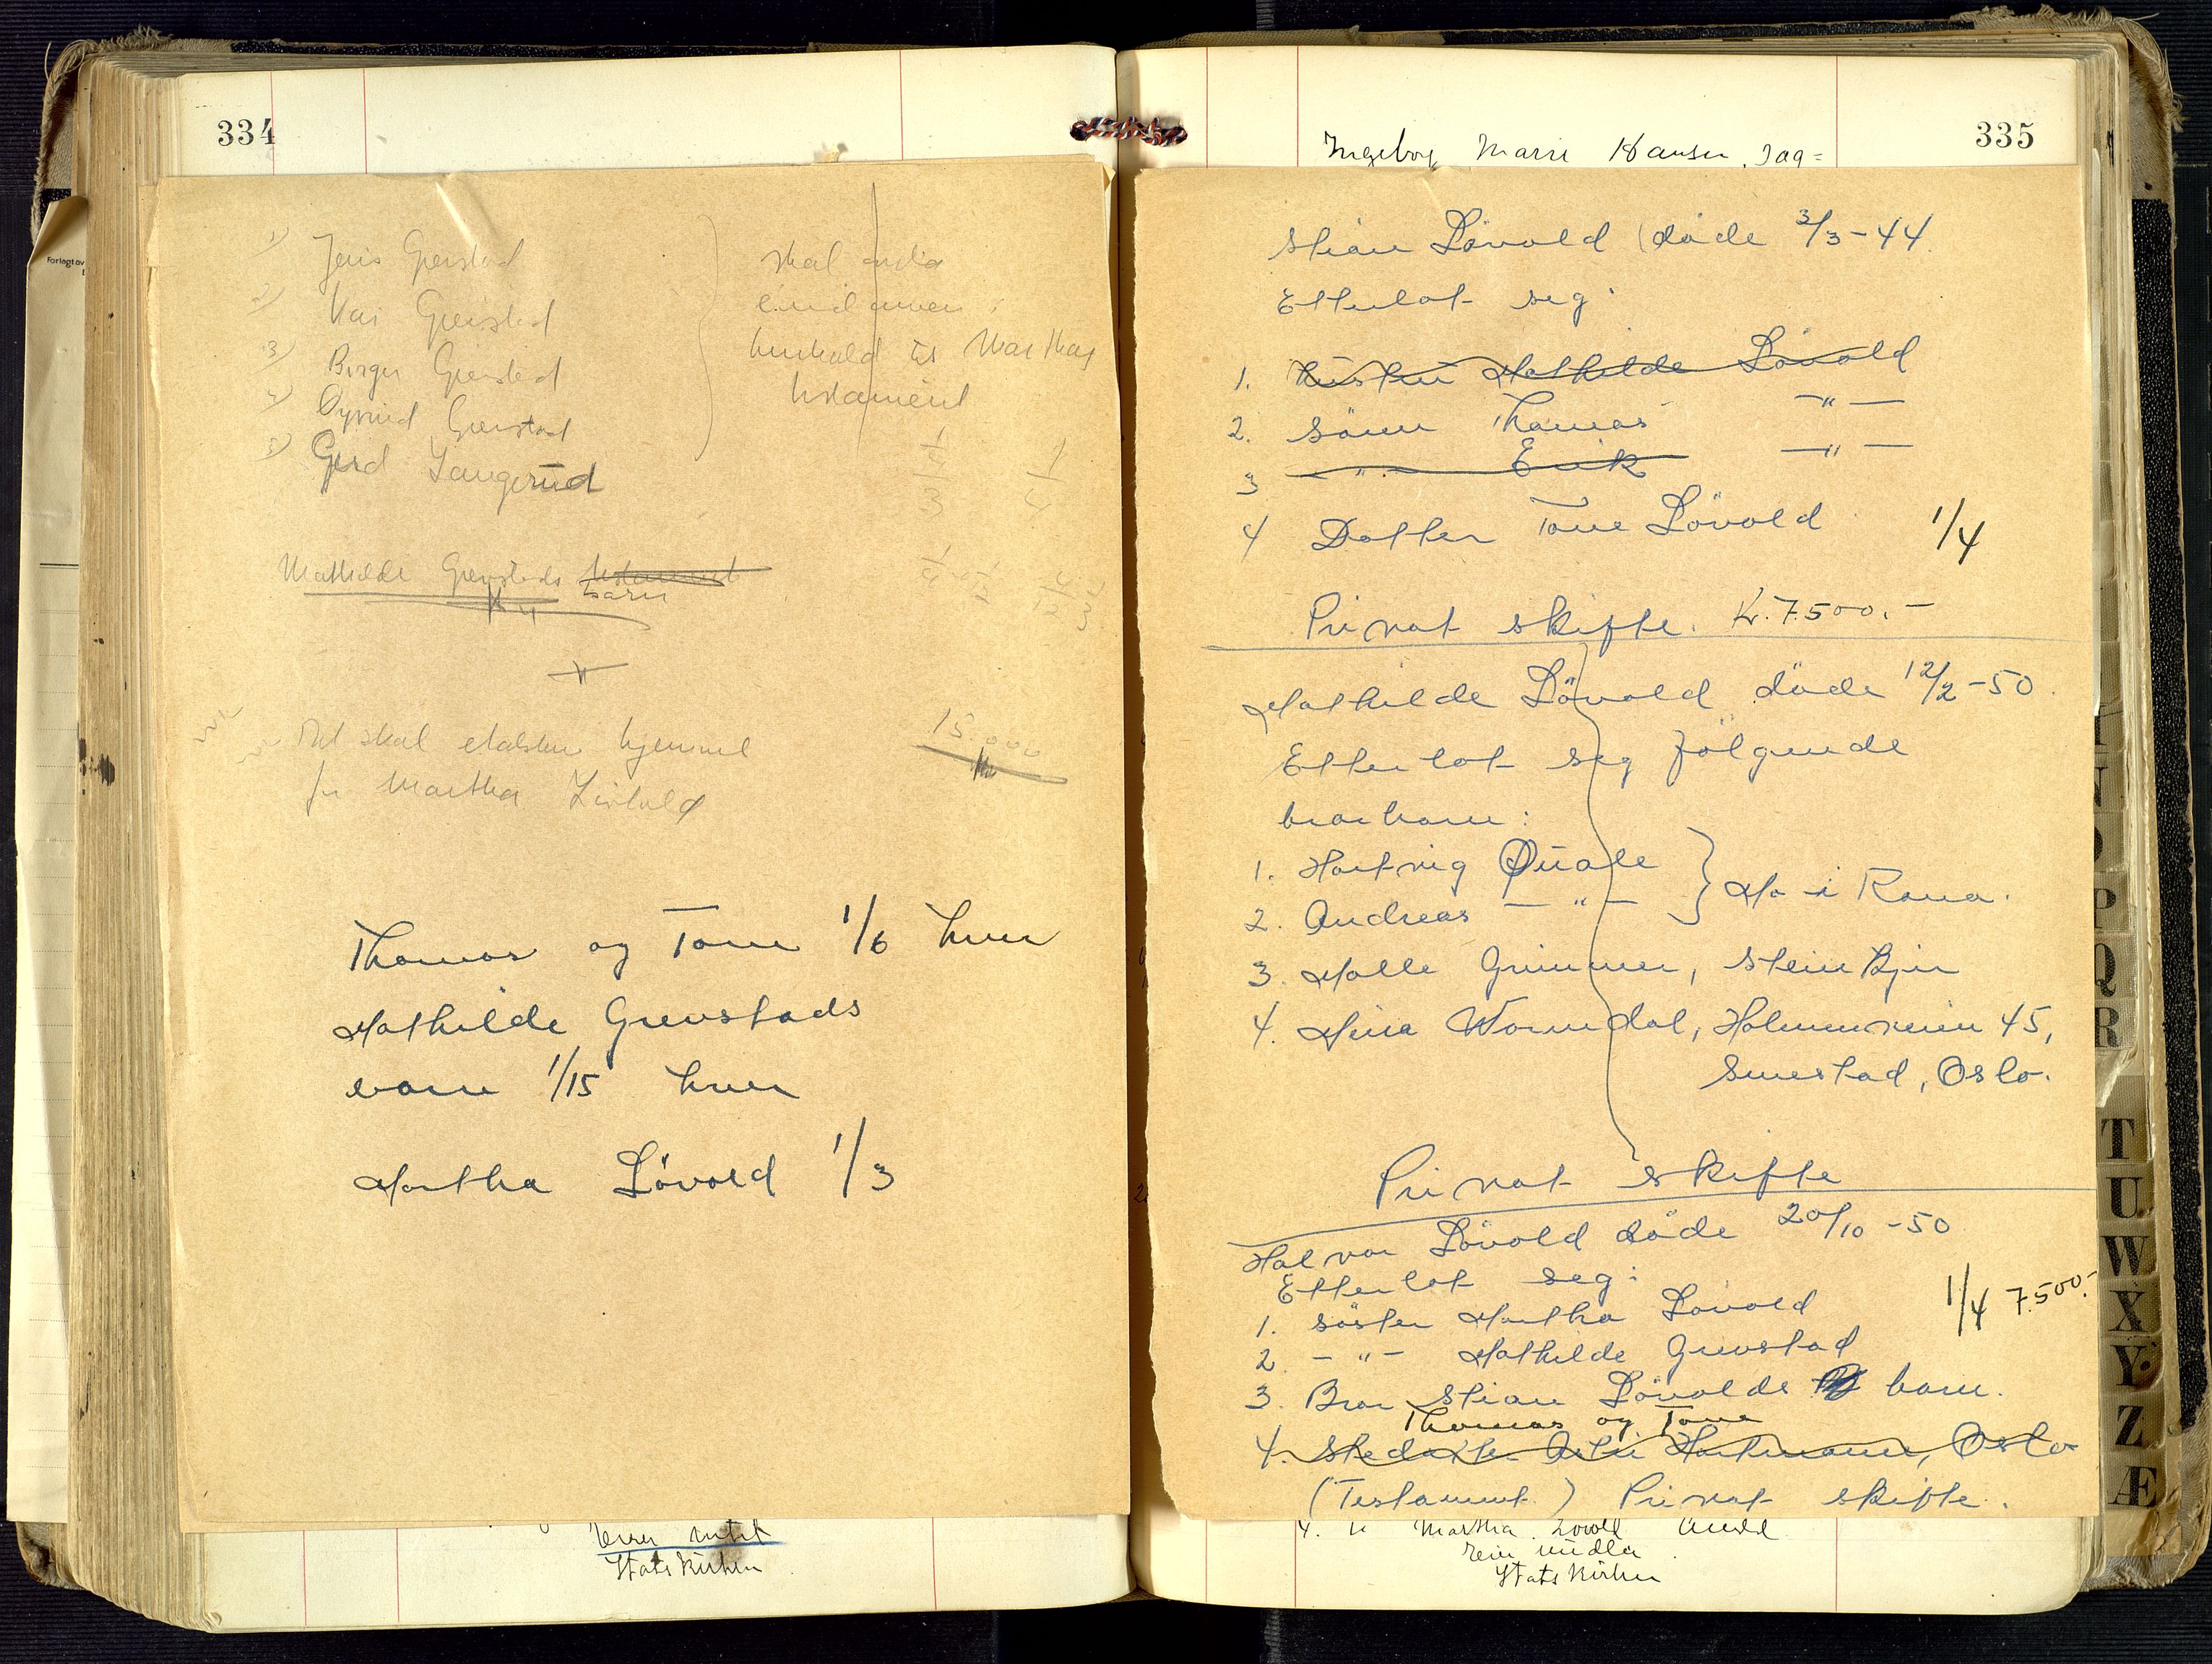 334
1) Jens Grenstad
2) Kai Grenstad
3) Birger Grenstad
4) Øyvind Grenstad
5) Gerd Langerud
skal andla
eiendommen i
henhold til Marthas
testament
1/3
1/4
Mathilde Grenstads testament
barn
15.000
Det skal etableres hjemmel
for Martha Løvold
Thomas og Tone 1/6 hver
Mathilde Grenstads
barn 1/15 hver
Martha Lövold 1/3
Statskirken
335
Ingeborg Marie Hansen, Dag=
Stian Lövold (døde 3/3-44
Etterlot seg:
1. Hustru Mathilde Lövold
2. Sönn Thomas —"—
3 — " — Erik —"—
4 Datter Tone Lövold 1/4
Privat skifte. Kr. 7.500.-
Mathilde Lövold döde 12/2-50.
Etterlot seg fölgende
brorbarn:
1. Hartvig Qvale
2. Andreas —"— } Mo i Rana.
3. Malle Grimmer, Steinkjer
4. Mina Wormdal, Holmenveien 45,
Smestad, Oslo.
Privat skifte
Halvor Lövold döde 20/10-50
Etterlot seg:
1. Söster Martha Lövold 1/4 7.500.-
2. —"— Mathilde Grenstad
3. Bror Stian Lövolds barn.
Thomas og Tone
4. Hartmann, Oslo
(Testament) Privat skifte.
4. Martha Lövold
Statskirken
T
U
W
X
Y
Z
Æ